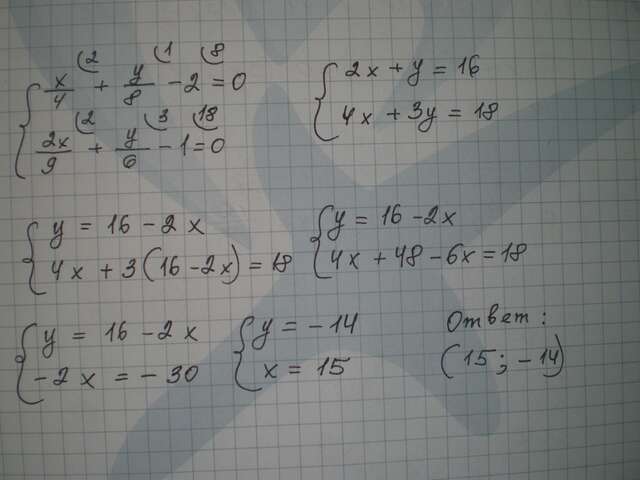 x/4 (2 + y/8 (1 - 2 (8 = 0
2x/9 (2 + y/6 (3 - 1 (18 = 0
2x + y = 16
4x + 3y = 18
y = 16 - 2x
4x + 3(16 - 2x) = 18
y = 16 - 2x
4x + 48 - 6x = 18
y = 16 - 2x
-2x = -30
y = -14
x = 15
Ответ:
(15; -14)